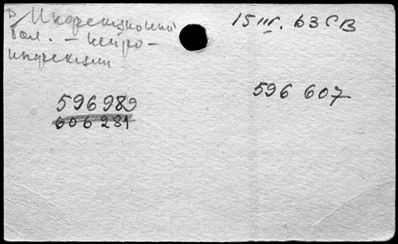 В Инфекционный
бол. – нейро-
инфекции
15 III. 63 СВ
596989
606281
596 607